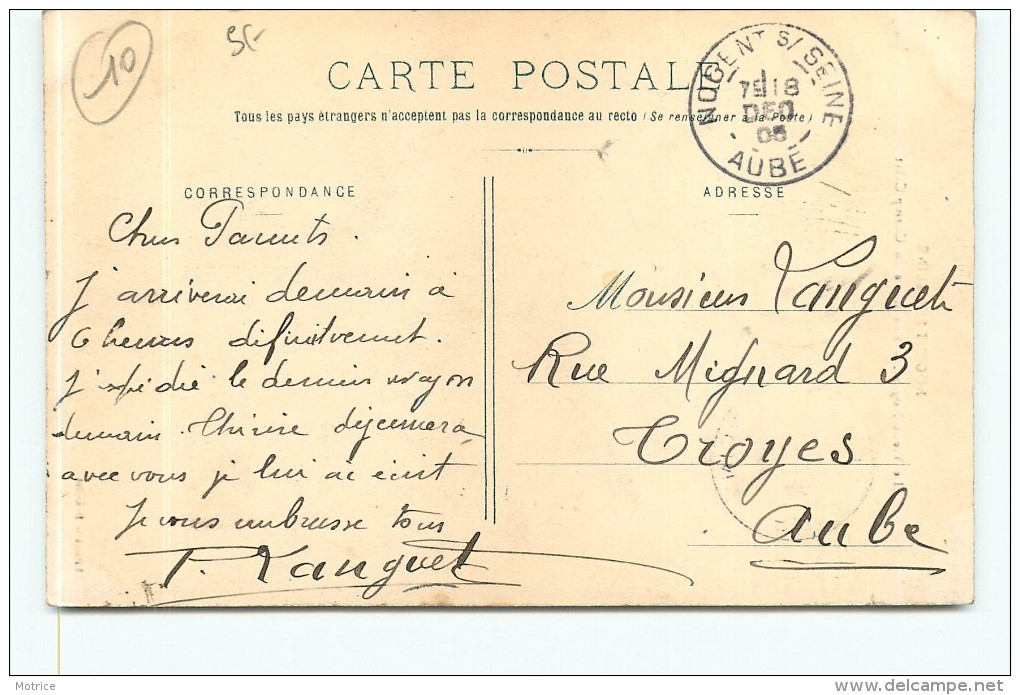 10
CARTE POSTALE
Tous les pays étrangers n'acceptent pas la correspondance au recto (Se renseigner à la Poste)
NOGENT S/ SEINE
18
DEC
05
AUBE
CORRESPONDANCE
Chers Parents.
J'arriverai demain à
6 heures définitivement.
J'expédie le dernier wagon
demain. Thérèse déjeunera
avec vous je lui ai écrit
Je vous embrasse tous
P. Languet
ADRESSE
Monsieur Languet
Rue Mignard 3
Troyes
Aube
Motrice
delcampe.net